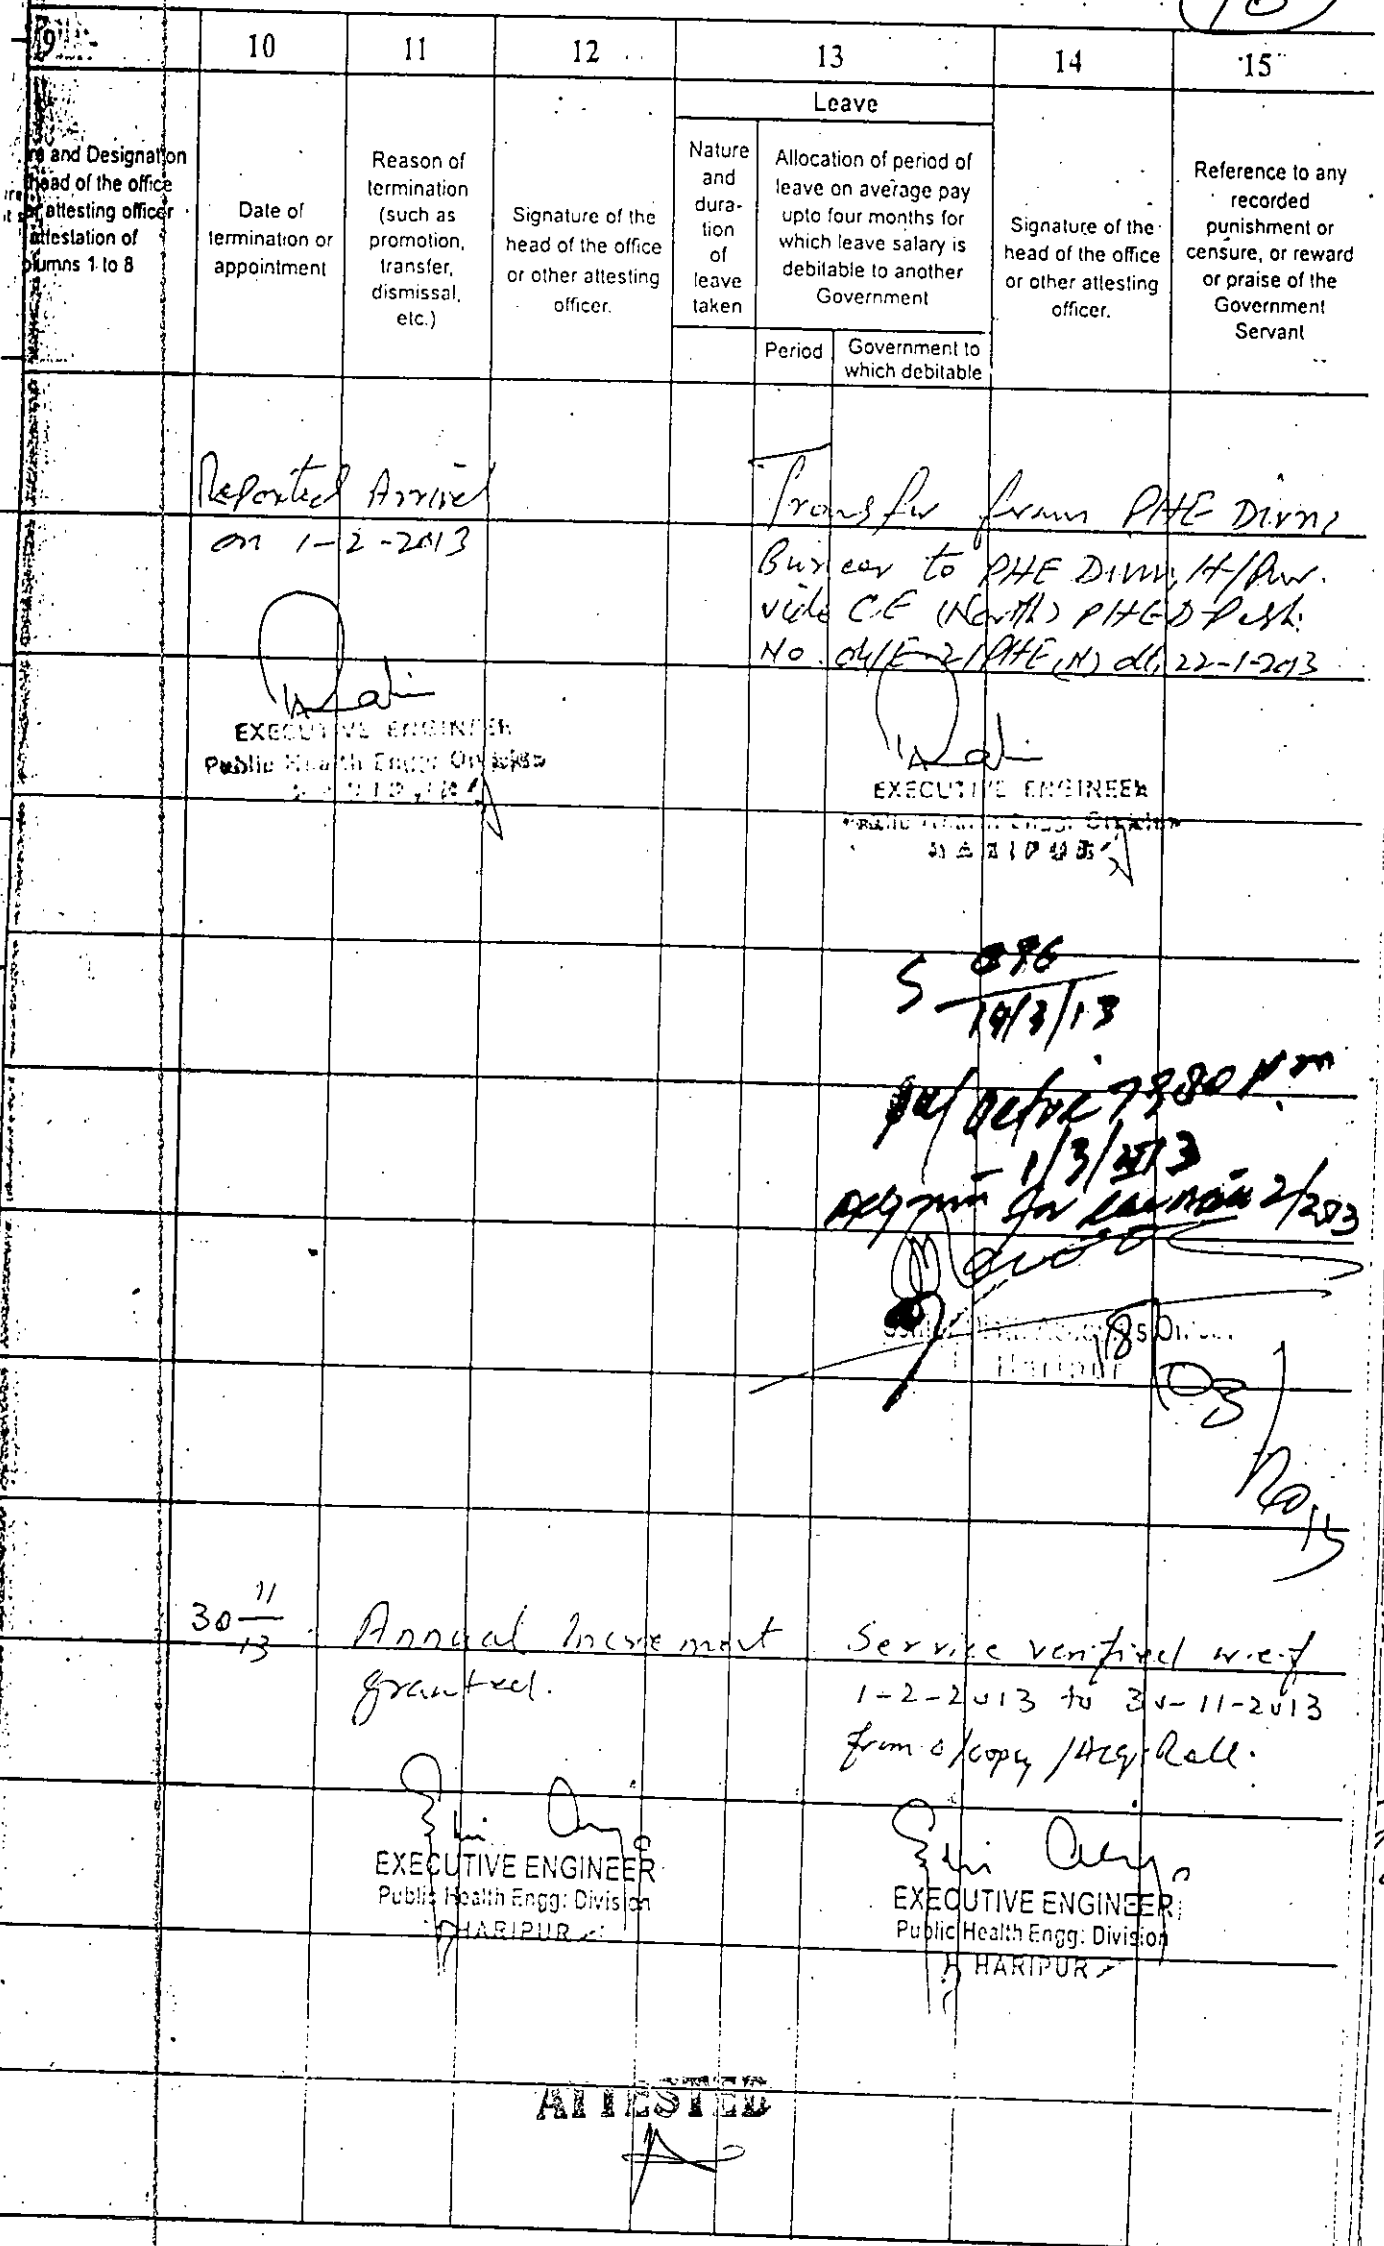 9
10
11
12
13
14
15
Leave
and Designation
head of the office
attesting officer
attestation of
columns 1 to 8
Date of
termination or
appointment
Reason of
termination
(such as
promotion,
transfer,
dismissal,
etc.)
Signature of the
head of the office
or other attesting
officer.
Nature
and
dura-
tion
of
leave
taken
Allocation of period of
leave on average pay
upto four months for
which leave salary is
debitable to another
Government
Period
Government to
which debitable
Signature of the
head of the office
or other attesting
officer.
Reference to any
recorded
punishment or
censure, or reward
or praise of the
Government
Servant
Reported Arrival
on 1-2-2013
EXECUTIVE ENGINEER
Public Health Engg: Division
HARIPUR
Transfer from PHE Divn:
to PHE Divn: H/Pur.
vide C.E (North) PHED Pesh:
No. 04/E-2/PHE(N) dt: 22-1-2013
EXECUTIVE ENGINEER
Public Health Engg: Division
HARIPUR
14/3/13
1/3/2013
for 2/2013
Haripur
30 11/13
Annual Increment
granted.
Service verified w.e.f
1-2-2013 to 30-11-2013
from o/copy /Acq: Roll.
EXECUTIVE ENGINEER
Public Health Engg: Division
HARIPUR
EXECUTIVE ENGINEER
Public Health Engg: Division
HARIPUR
ATTESTED